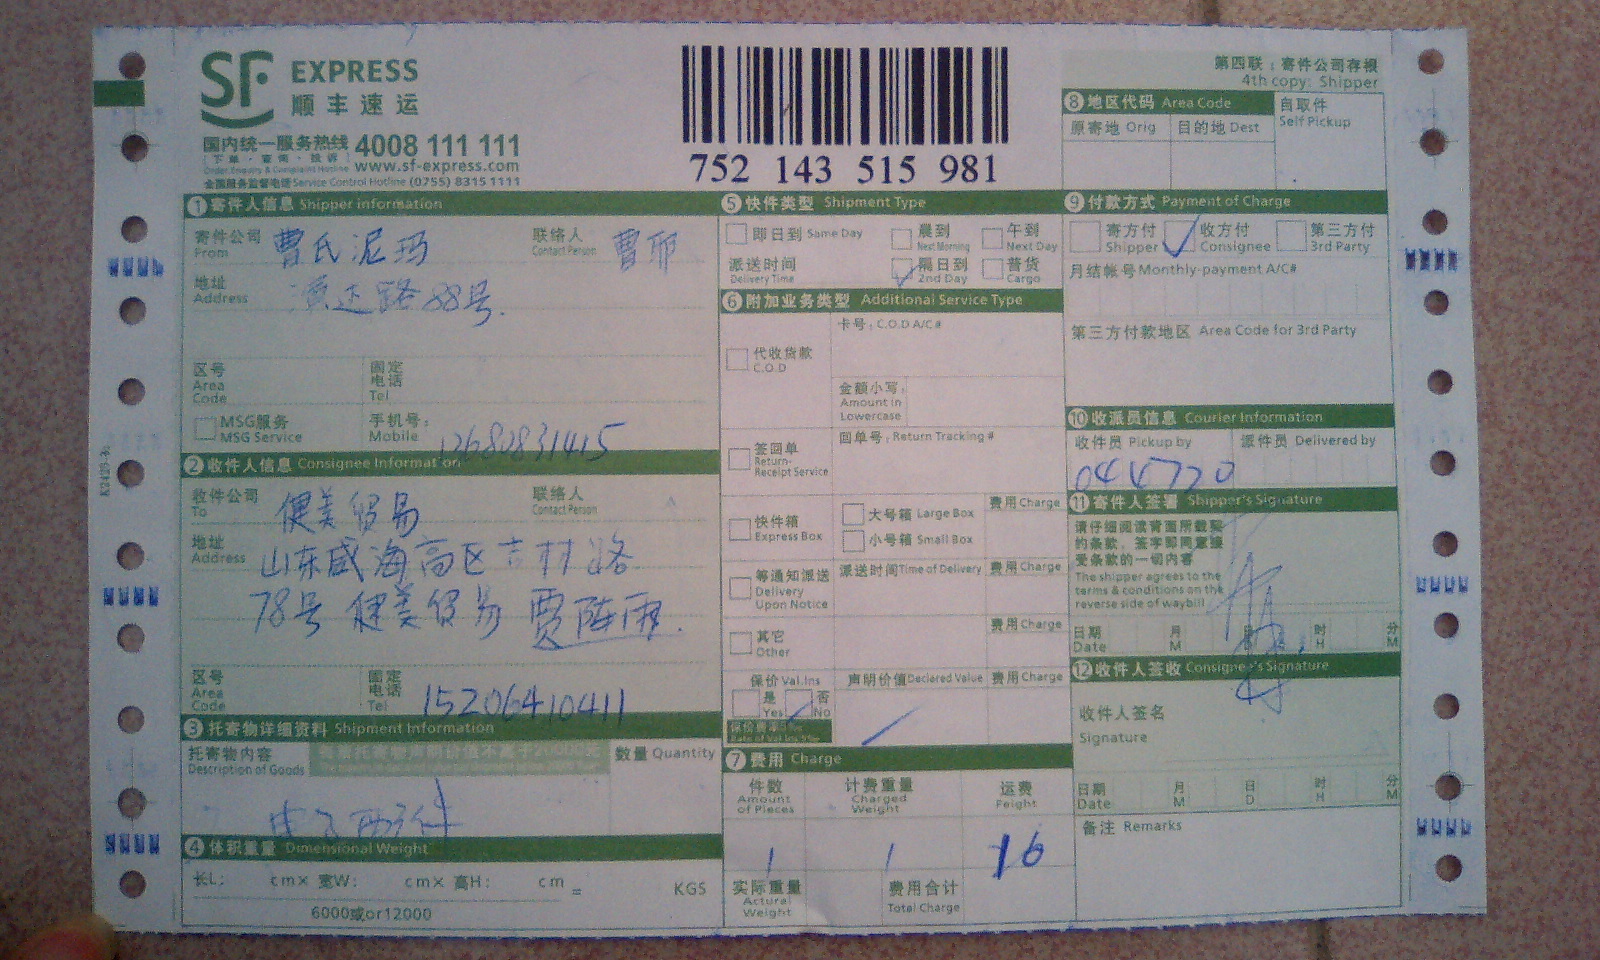 SF EXPRESS
顺丰速运
国内统一服务热线 4008 111 111
下单·查询·投诉
Order, Enquiry & Complaint Hotline www.sf-express.com
全国服务监督电话 Service Control Hotline (0755) 8315 1111
752 143 515 981
第四联：寄件公司存根
4th copy: Shipper
8 地区代码 Area Code
原寄地 Orig 目的地 Dest
自取件
Self Pickup
1 寄件人信息 Shipper information
寄件公司
From
曹氏泥玛
联络人
Contact Person
曹
地址
Address
路88号.
区号
Area
Code
固定
电话
Tel
MSG服务
MSG Service
手机号：
Mobile
12682831415
2 收件人信息 Consignee Information
收件公司
To
健美贸易
联络人
Contact Person
地址
Address
山东威海高区吉林路
78号 健美贸易 贾阵雨.
区号
Area
Code
固定
电话
Tel
15206410411
3 托寄物详细资料 Shipment Information
托寄物内容
Description of Goods
数量 Quantity
电子两件
4 体积重量 Dimensional Weight
长L: cm× 宽W: cm× 高H: cm = KGS
6000或or12000
5 快件类型 Shipment Type
即日到 Same Day
晨到
Next Morning
午到
Next Day
派送时间
Delivery Time
隔日到
2nd Day
普货
Cargo
6 附加业务类型 Additional Service Type
代收货款
C.O.D
卡号：C.O.D A/C#
金额小写：
Amount in
Lowercase
签回单
Return-
Receipt Service
回单号：Return Tracking #
快件箱
Express Box
大号箱 Large Box
小号箱 Small Box
费用 Charge
等通知派送
Delivery
Upon Notice
派送时间 Time of Delivery
费用 Charge
其它
Other
费用 Charge
保价 Val.Ins
是
Yes
否
No
声明价值 Declared Value
费用 Charge
7 费用 Charge
件数
Amount
of Pieces
计费重量
Charged
Weight
运费
Feight
1 1 16
实际重量
Actural
Weight
费用合计
Total Charge
9 付款方式 Payment of Charge
寄方付
Shipper
收方付
Consignee
第三方付
3rd Party
月结帐号 Monthly-payment A/C#
第三方付款地区 Area Code for 3rd Party
10 收派员信息 Courier Information
收件员 Pickup by
派件员 Delivered by
044720
11 寄件人签署 Shipper's Signature
请仔细阅读背面所载契
约条款，签字即同意接
受条款的一切内容
The shipper agrees to the
terms & conditions on the
reverse side of waybill
日期 月 日 时 分
Date M D H M
12 收件人签收 Consignee's Signature
收件人签名
Signature
日期 月 日 时 分
Date M D H M
备注 Remarks